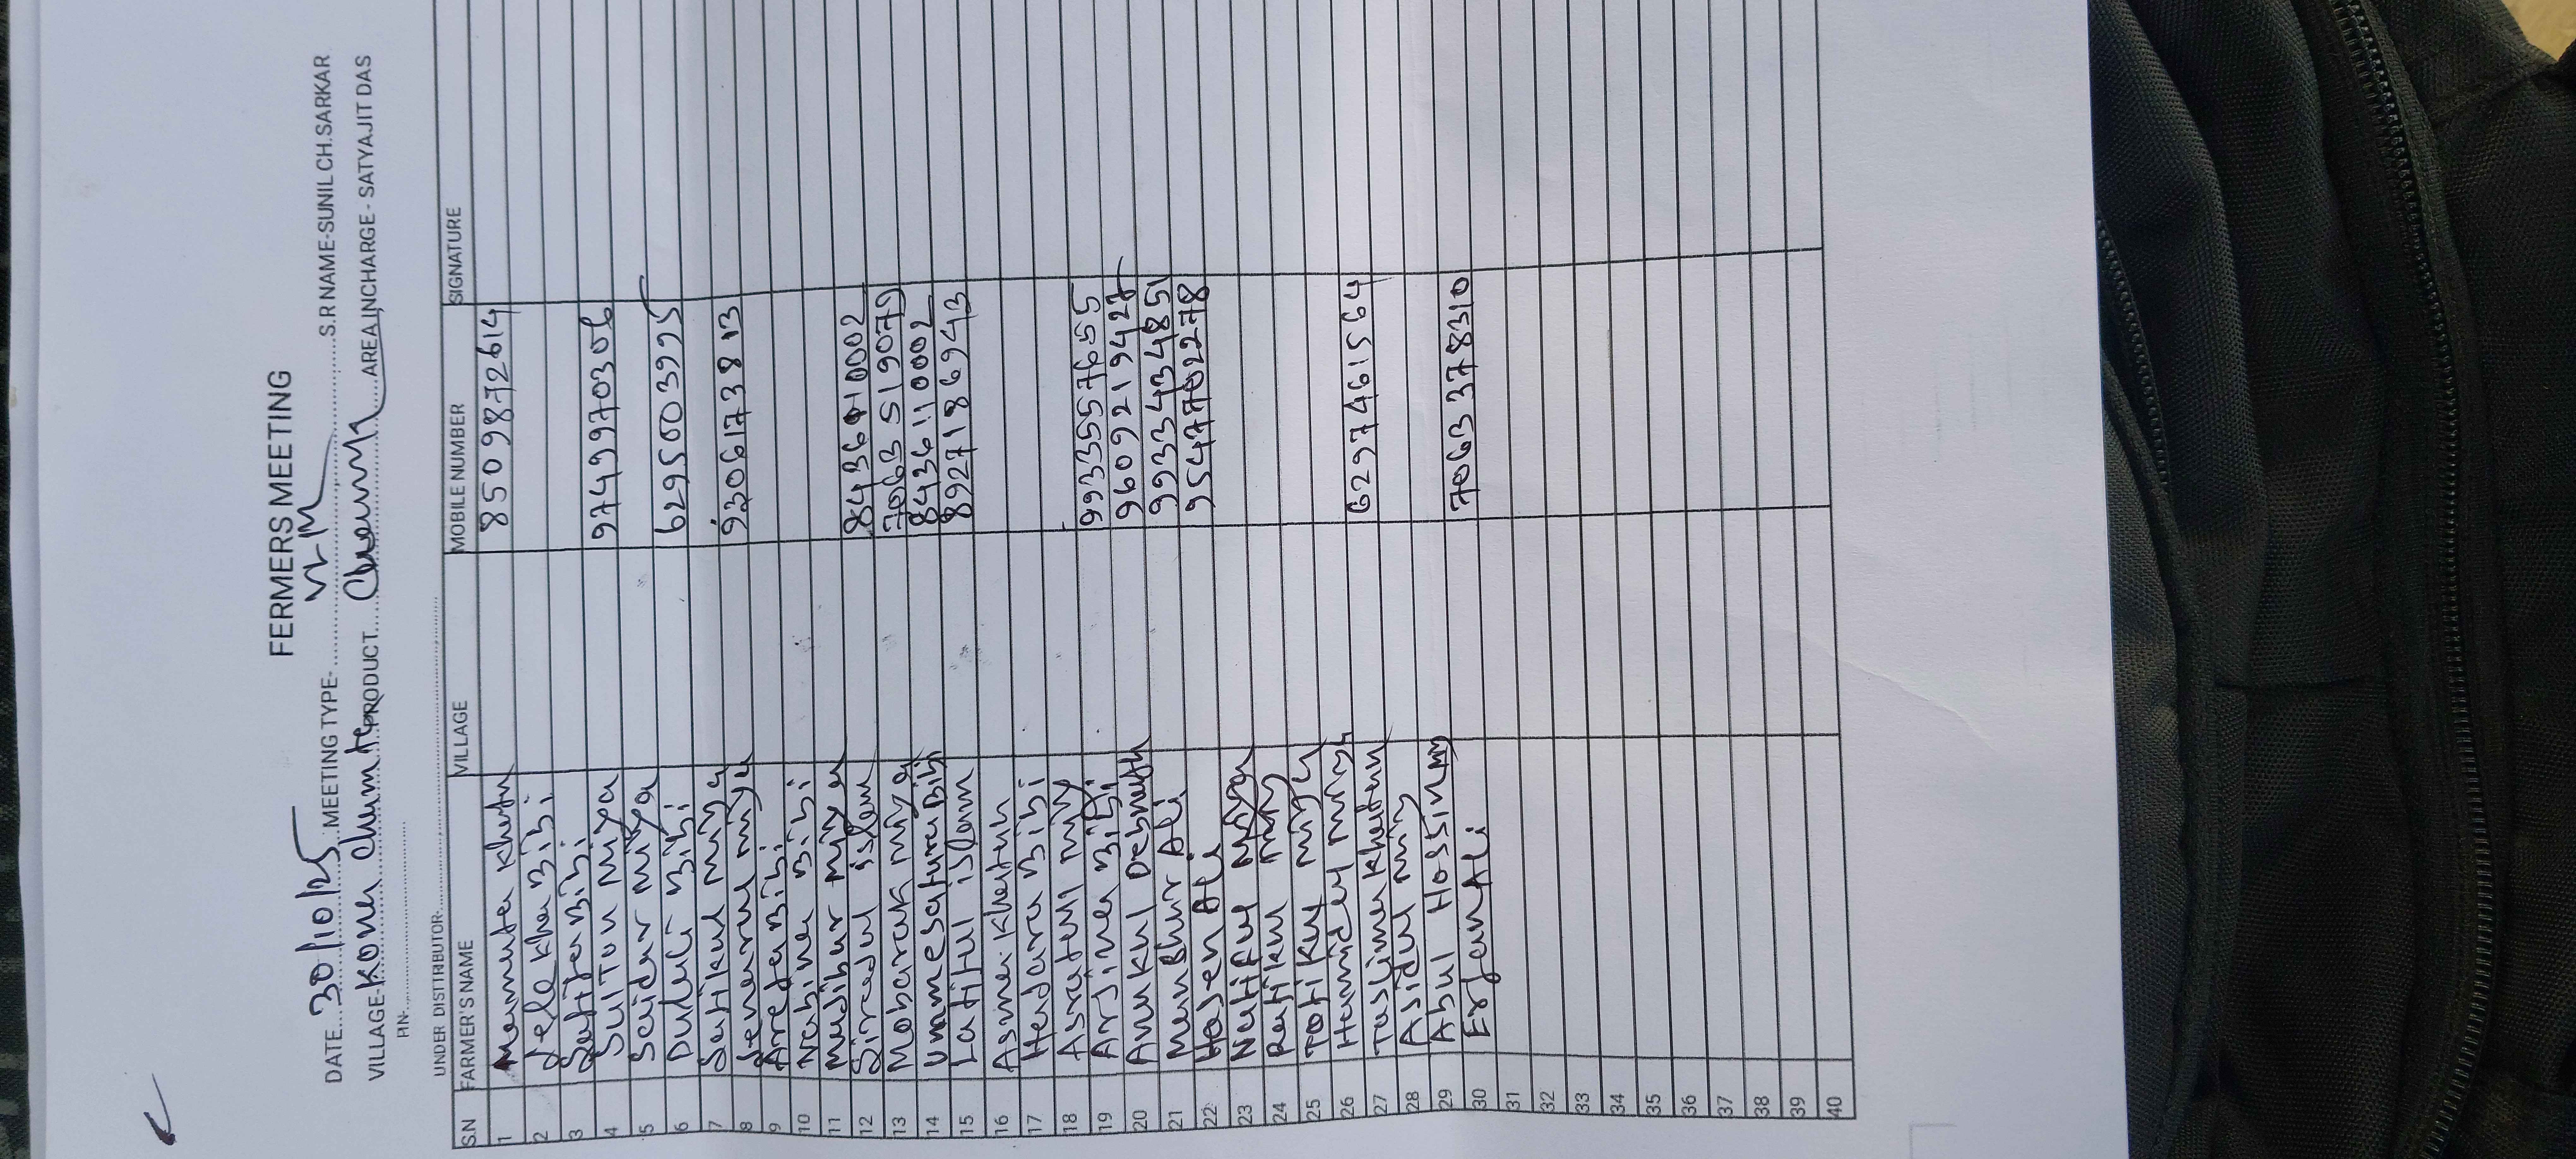 FERMERS MEETING
DATE 30/10/25 MEETING TYPE- VLM S.R NAME-SUNIL CH.SARKAR
VILLAGE- PRODUCT AREA INCHARGE - SATYAJIT DAS
PIN-
UNDER DISTRIBUTOR-
S.N FARMER'S NAME VILLAGE MOBILE NUMBER SIGNATURE
1 Mamuta Khatun 8509872614
2 Jelekha Bibi
3 Bibi
4 Sultan Miya 9749970306
5 Saidar Miya
6 Dulali Bibi 6295003995
7 Satikul Miya
8 Jenarul Miya 9206173813
9 Arefa Bibi
10 Nabina Bibi
11 Mudibur Miya
12 Siradul islam 10002
13 Mobarak Miya 7063519079
14 Bibi 8436110002
15 Latiful islam 8927186943
16 Asma Khatun
17 Hadara Bibi
18 Asraful Miy
19 Arjina Bibi 9933557655
20 Anukul Debnath 9609219427
21 Ali 9933434851
22 Hasen Ali 9547702278
23 Natiful Miya
24 Ratikul Miy
25 Totikul Miya
26 Hamidul Miya 6297461564
27 Taslima Khatun
28 Asidul Miy
29 Abul Hossin My 7063378310
30 Erfan Ali
31
32
33
34
35
36
37
38
39
40